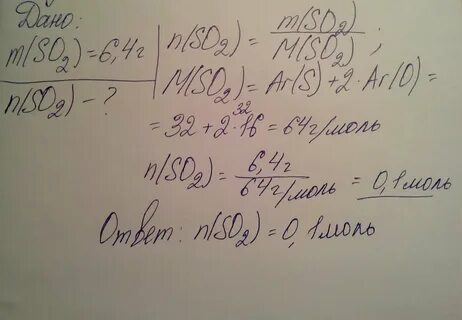 Дано:
m(SO₂)=6,4г
n(SO₂)-?
n(SO₂) = m(SO₂)/M(SO₂) ;
M(SO₂) = Ar(S)+2·Ar(O) =
= 32 + 2·16 = 64г/моль
32
n(SO₂) = 6,4г/64г/моль = 0,1моль
Ответ: n(SO₂)=0,1моль